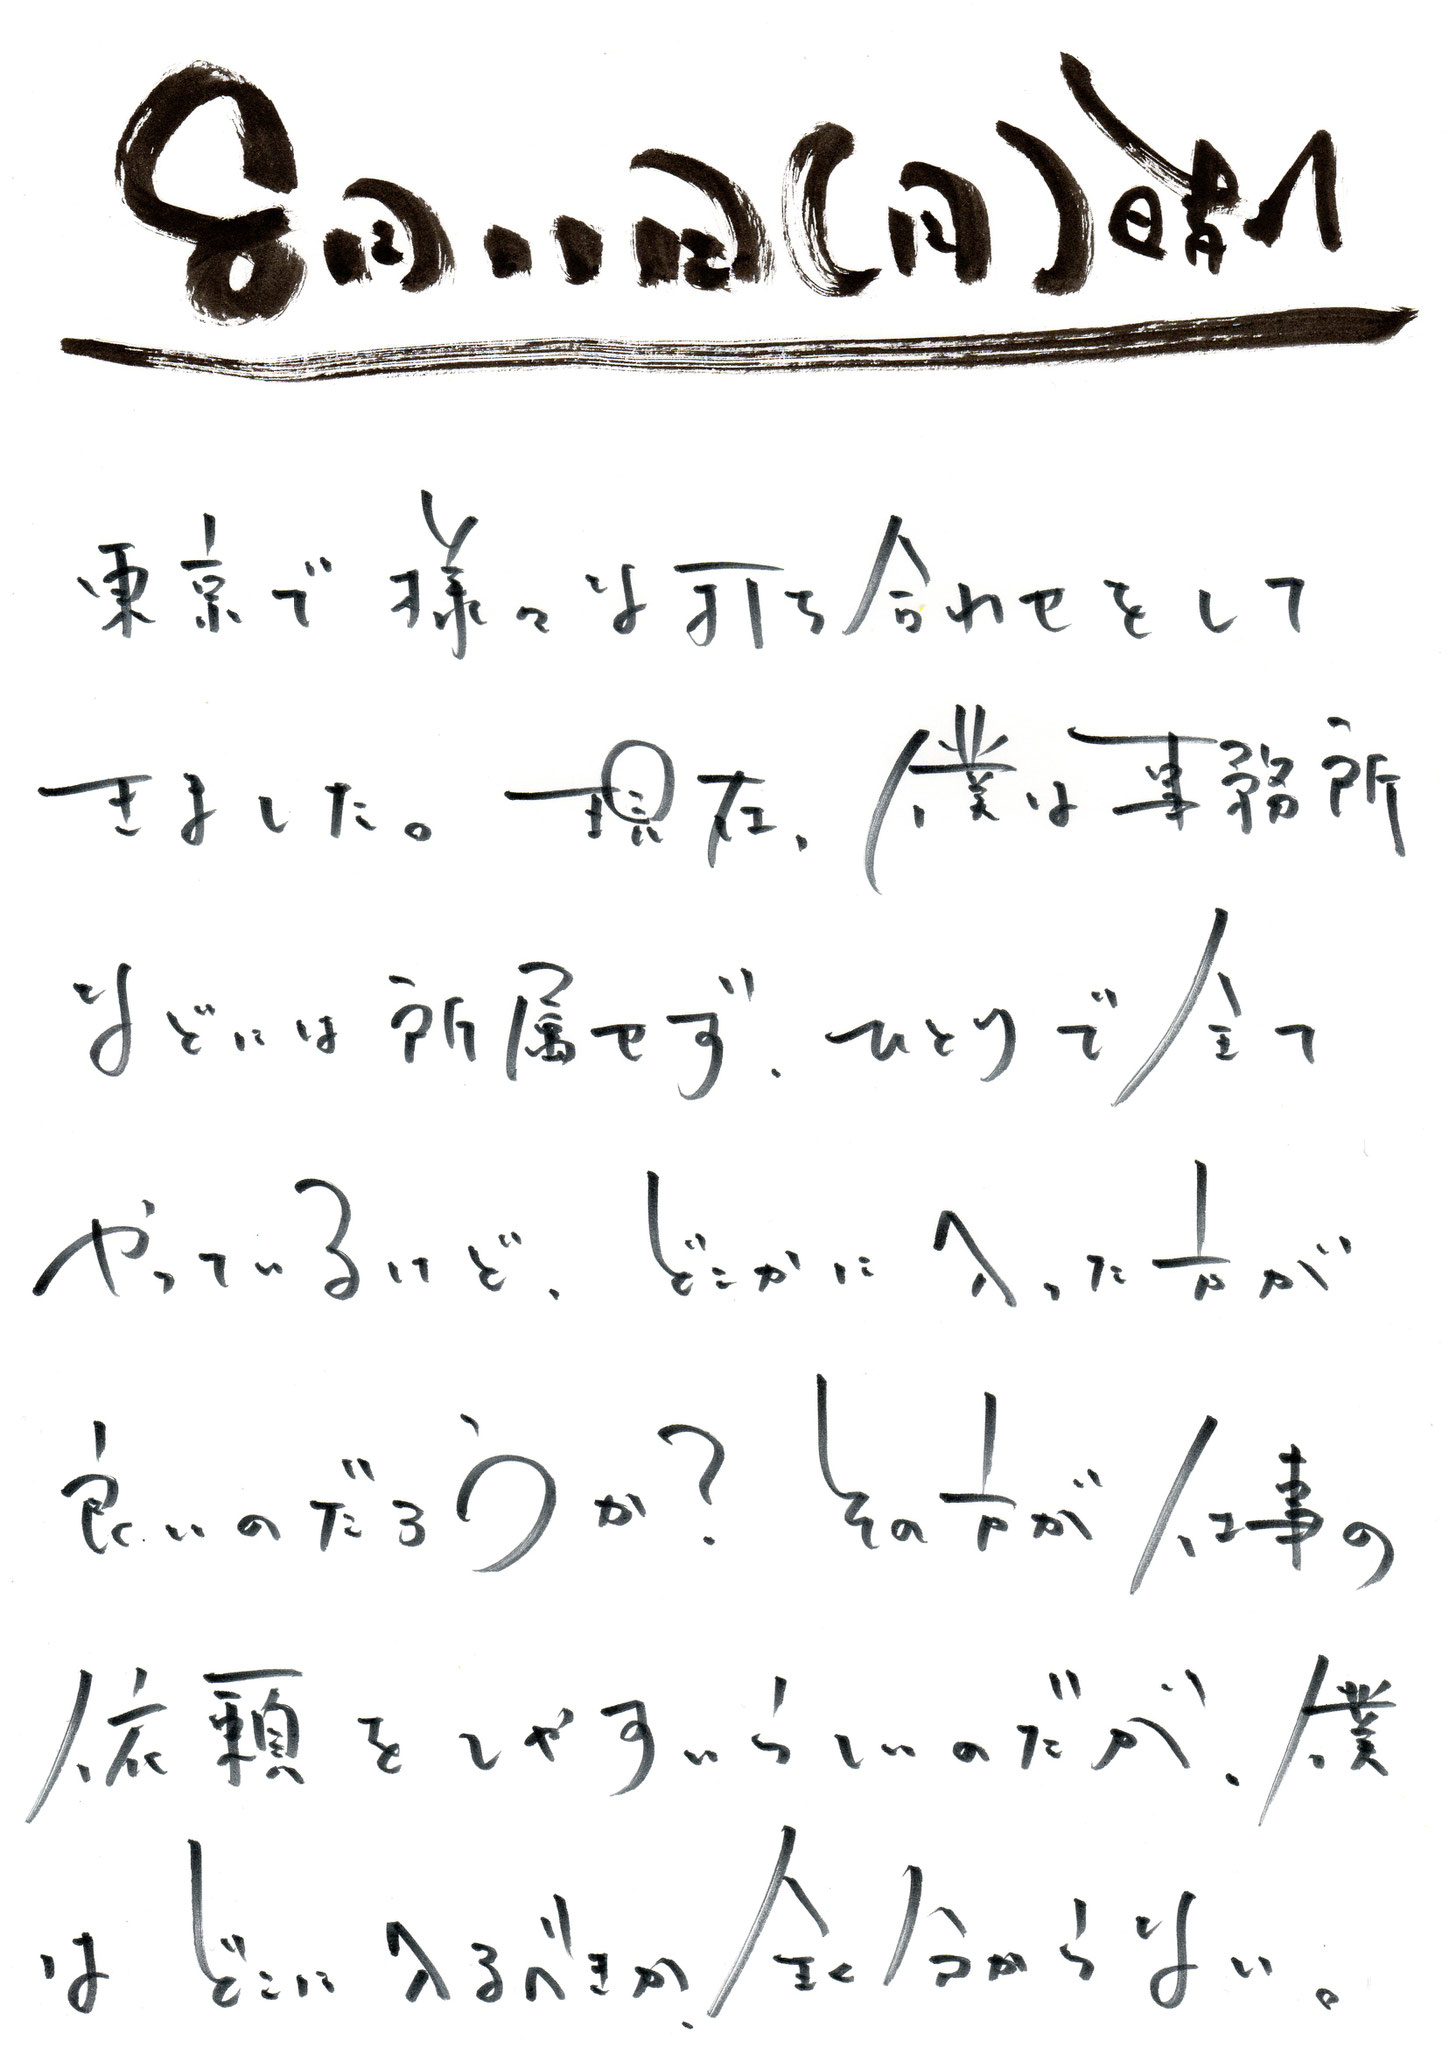 8月11日(月)晴れ
東京で様々な打ち合わせをして
きました。現在、僕は事務所
などには所属せず、ひとりで全て
やっているけど、どこかに入った方が
良いのだろうか?その方が仕事の
依頼をしやすいらしいのだが、僕
はどこに入るべきか、全く分からない。